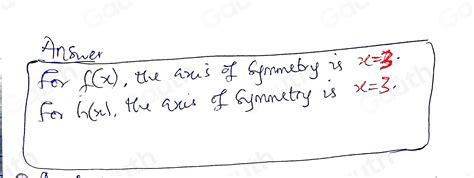 Answer
For f(x), the axis of symmetry is x=3.
For h(x), the axis of symmetry is x=3.